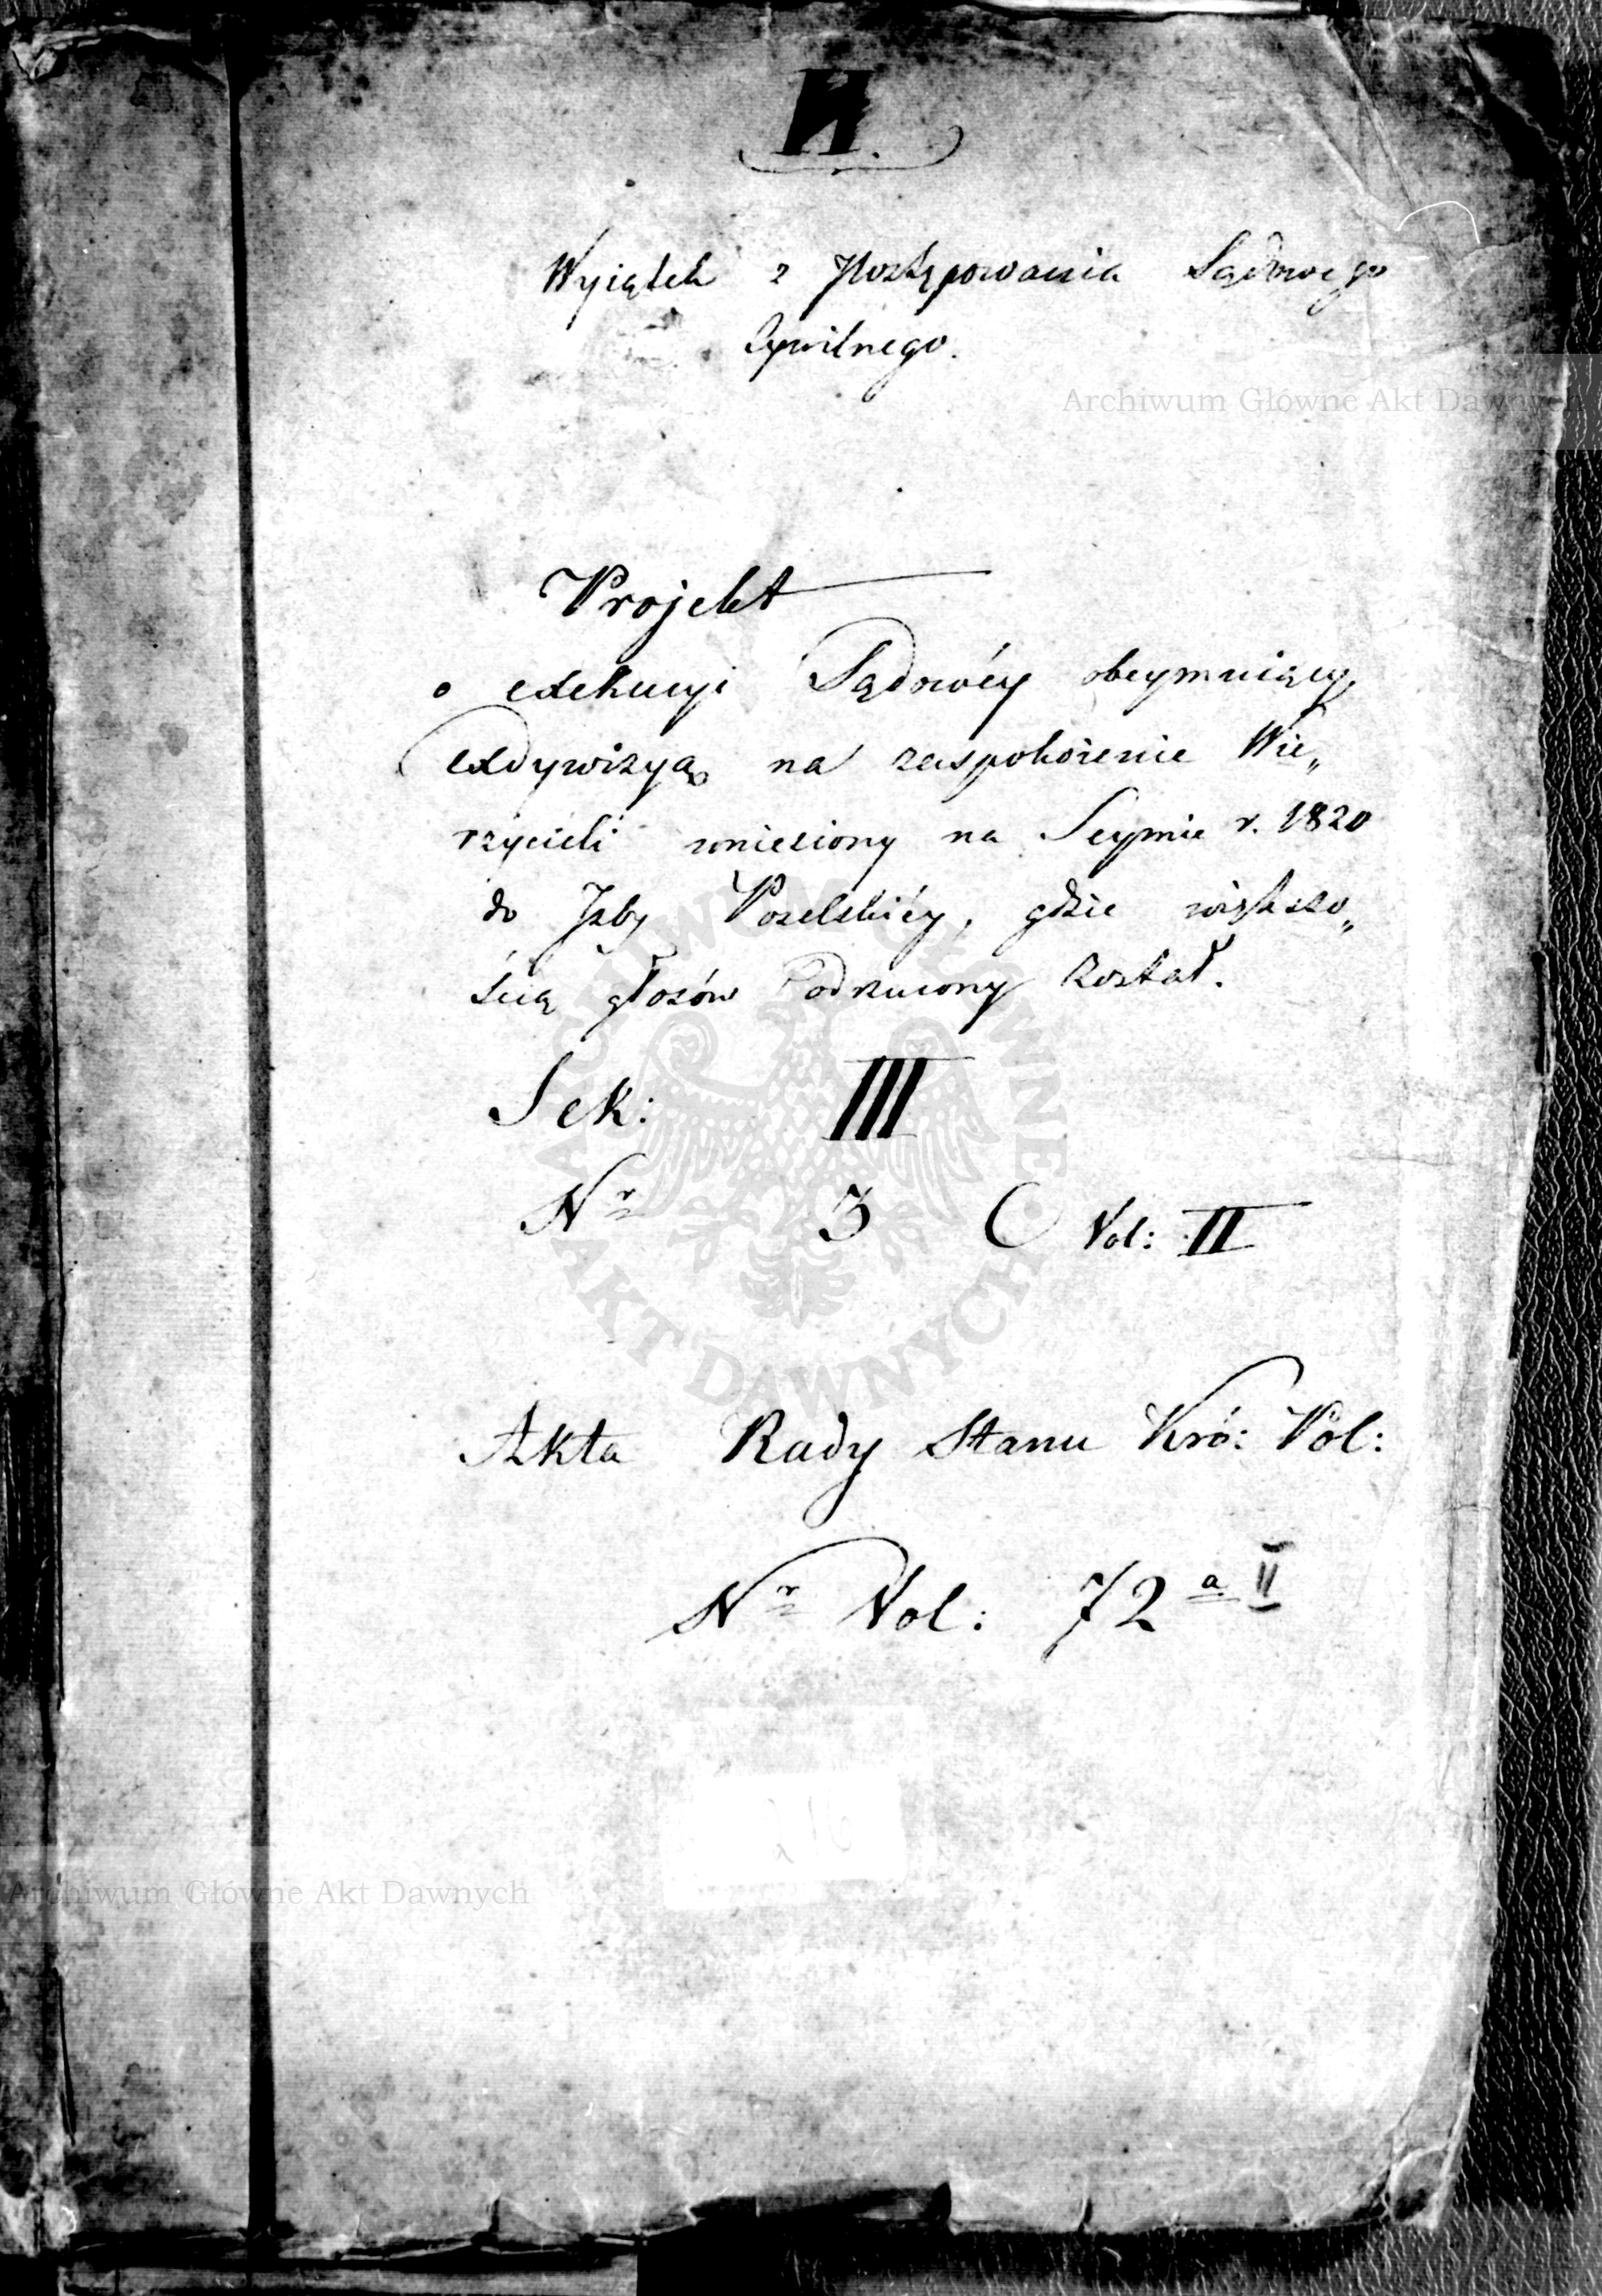 H.
Wyiątek z Postępowania Sądowego
Cywilnego.
Archiwum Główne Akt Dawnych
Projekt
o exekucyi Sądowéy obeymuiący
exdywizyą na zaspokoienie Wie„
rzycieli wniesiony na Seymie r. 1820
do Jzby Poselskiéy, gdzie większo„
ścią głosów odrzucony został.
Sek: III
Nr 3 C Vol: II
ARCHIWUM GŁÓWNE AKT DAWNYCH
Akta Rady Stanu Kró: Pol:
Nr Vol: 72 a II
Archiwum Główne Akt Dawnych